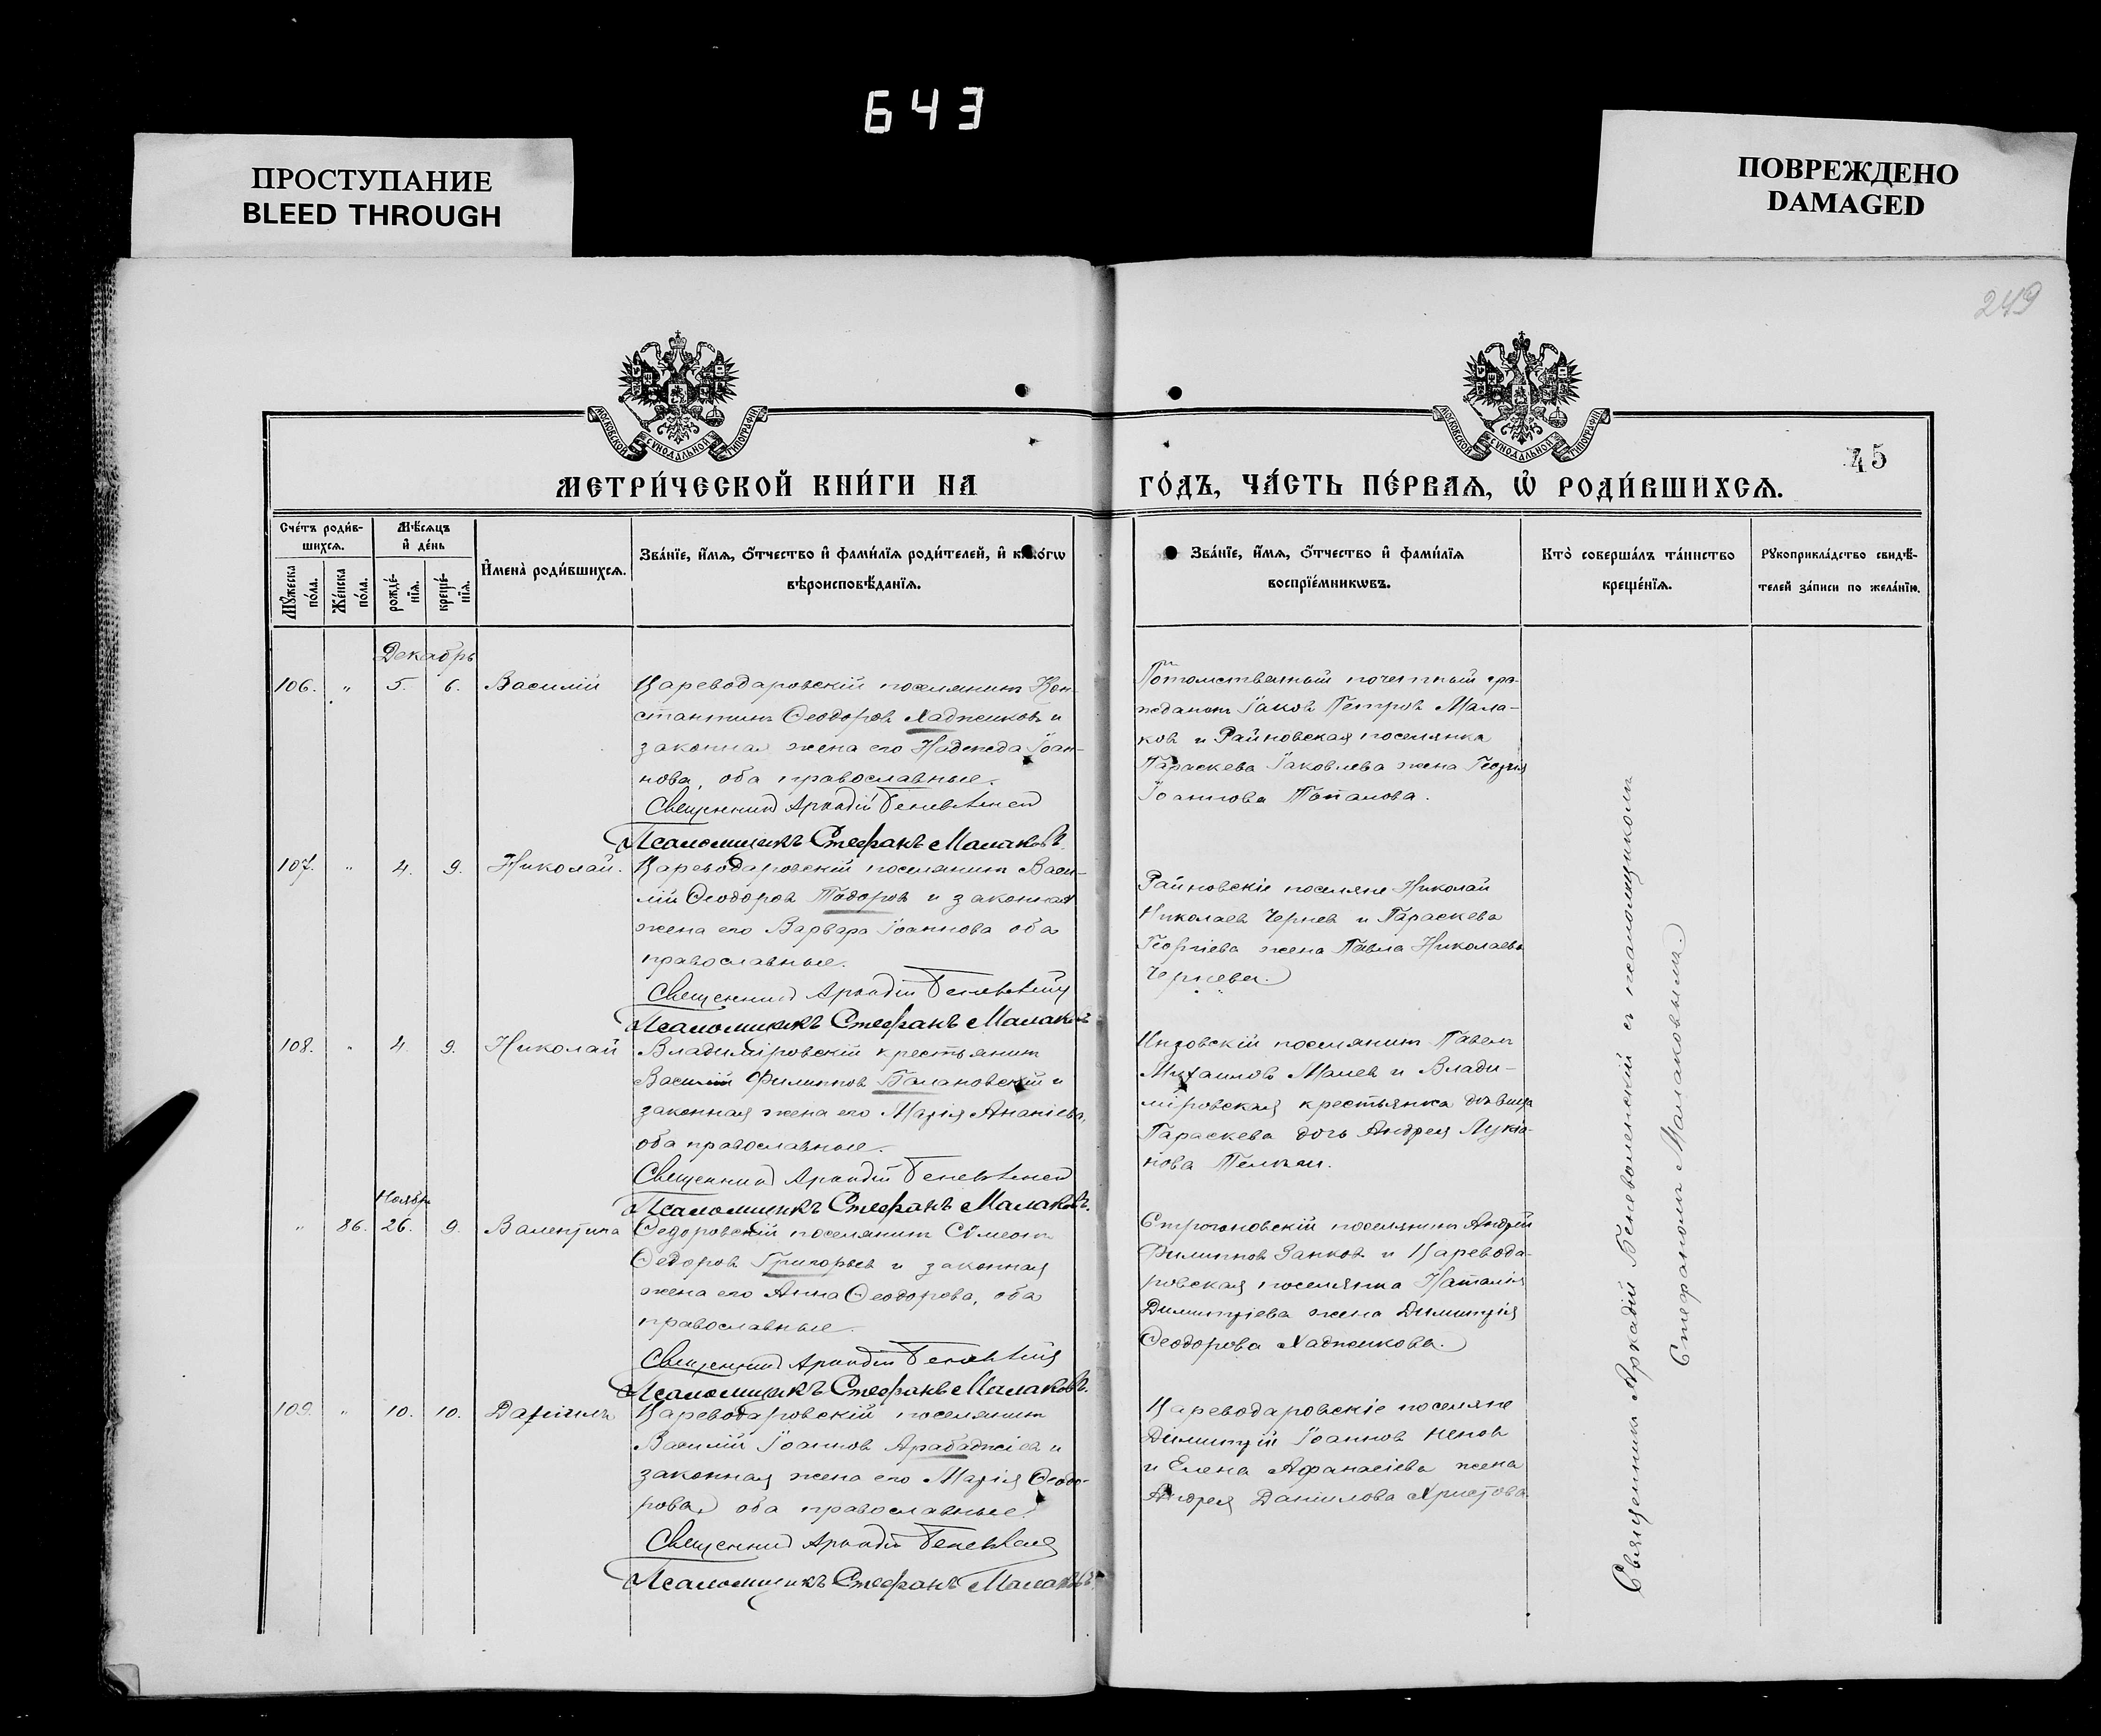 643
ПРОСТУПАНИЕ
BLEED THROUGH
ПОВРЕЖДЕНО
DAMAGED
249
МОСКОВСКОЙ СѴНОДАЛЬНОЙ ТИПОГРАФІИ
МОСКОВСКОЙ СѴНОДАЛЬНОЙ ТИПОГРАФІИ
45
МЕТРИ́ЧЕСКОЙ КНИ́ГИ НА
ГО́ДЪ, ЧА́СТЬ ПЕ́РВАѦ, Ѡ҆ РОДИ́ВШИХСѦ.
Сче́тъ роди́в-
шихсѧ.
Мꙋ́жеска по́ла.
Же́нска по́ла.
Мѣ́сѧцъ
и҆ де́нь
рожде́-
нїѧ.
креще́-
нїѧ.
И҆мена̀ роди́вшихсѧ.
Зва́нїе, и҆́мѧ, ѻ҆́тчество и҆ фами́лїѧ роди́телей, и҆ како́гѡ
вѣроисповѣ́данїѧ.
Зва́нїе, и҆́мѧ, ѻ҆́тчество и҆ фами́лїѧ
воспрїе́мникѡвъ.
Кто̀ соверша́лъ та́инство
креще́нїѧ.
Рꙋкоприкла́дство свидѣ́-
телей за́писи по жела́нїю.
Декабрь
106. " 5. 6. Василій
Цареводаровскій поселянинъ Кон-
стантинъ Ѳеодоровъ Хаджиковъ и
законная жена его Надежда Іоан-
нова, оба православные.
Священникъ Аркадій
Псаломщикъ Стефанъ Малаковъ.
Потомственный почетный гра-
жданинъ Іаковъ Петровъ Мала-
ковъ и Райновская поселянка
Параскева Іаковлева жена Георгія
Іоаннова Топалова.
107. " 4. 9. Николай.
Цареводаровскій поселянинъ Васи-
лій Ѳеодоровъ Тодоровъ и законная
жена его Варвара Іоаннова оба
православные.
Священникъ Аркадій
Псаломщикъ Стефанъ Малаковъ
Райновскіе поселяне Николай
Николаевъ Чернев и Параскева
Георгіева жена Павла Николаева
Чернева.
108. " 4. 9. Николай
Владиміровскій крестьянинъ
Василій Филипповъ Балановскій и
законная жена его Марія Ананіева,
оба православные.
Священникъ Аркадій
Псаломщикъ Стефанъ Малаковъ.
Инзовскій поселянинъ Павелъ
Михаиловъ Малев и Влади-
міровская крестьянка дѣвица
Параскева дочь Андрея Лукіа-
нова
Ноябрь
" 86. 26. 9. Валентина
Ѳедоровскій поселянинъ Сѵмеонъ
Ѳедоровъ Григорьев и законная
жена его Анна Ѳеодорова, оба
православные.
Священникъ Аркадій
Псаломщикъ Стефанъ Малаковъ.
Строгоновскій поселянинъ Андрей
Филипповъ Занковъ и Царевода-
ровская поселянка Наталія
Димитріева жена Димитрія
Ѳеодорова Хаджикова.
109. " 10. 10. Даніилъ
Цареводаровскій поселянинъ
Василій Іоанновъ Арабаджіев и
законная жена его Марія Ѳеодо-
рова, оба православные.
Священникъ Аркадій
Псаломщикъ Стефанъ Малаковъ.
Цареводаровскіе поселяне
Димитрій Іоанновъ Ненов
и Елена Афанасіева жена
Андрея Даніилова Христова.
Священникъ Аркадій Беневоленскій съ псаломщикомъ
Стефаномъ Малаковымъ.